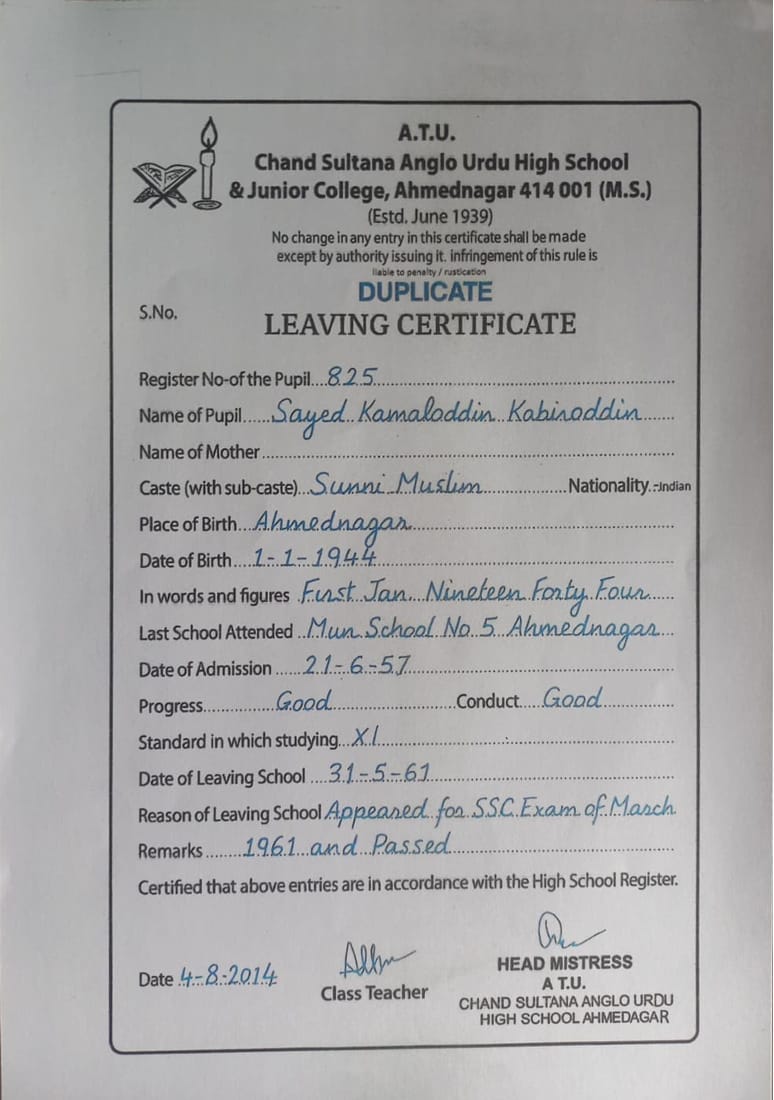 A.T.U.
Chand Sultana Anglo Urdu High School
& Junior College, Ahmednagar 414 001 (M.S.)
(Estd. June 1939)
No change in any entry in this certificate shall be made
except by authority issuing it. infringement of this rule is
liable to penalty / rustication
DUPLICATE
S.No.
LEAVING CERTIFICATE
Register No-of the Pupil...825
Name of Pupil......Sayed Kamaloddin Kabiroddin
Name of Mother
Caste (with sub-caste)...Sunni Muslim Nationality.-Indian
Place of Birth...Ahmednagar
Date of Birth....1-1-1944
In words and figures First Jan. Nineteen Forty Four
Last School Attended ..Mun. School No. 5 Ahmednagar
Date of Admission .....21-6-57
Progress...............Good Conduct....Good
Standard in which studying...XI
Date of Leaving School ....31-5-61
Reason of Leaving School Appeared for SSC Exam of March
Remarks ........1961 and Passed
Certified that above entries are in accordance with the High School Register.
Date 4-8-2014
Class Teacher
HEAD MISTRESS
A T.U.
CHAND SULTANA ANGLO URDU
HIGH SCHOOL AHMEDAGAR